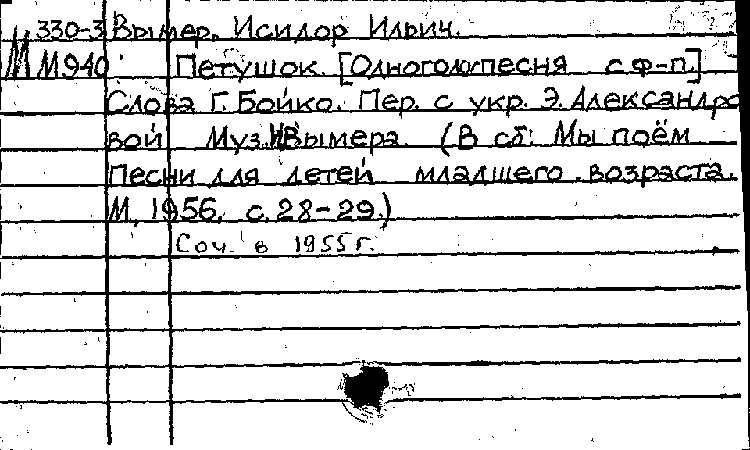 М 330-3 Вымер, Исидор Ильич.
М940 Петушок. [Одноголос. песня с ф-п.]
Слова Г. Бойко. Пер. с укр. Э. Александро
вой Муз. И. Вымера. (В сб: Мы поём
Песни для детей младшего возраста.
М, 1956. с. 28-29.)
Соч. в 1955г.